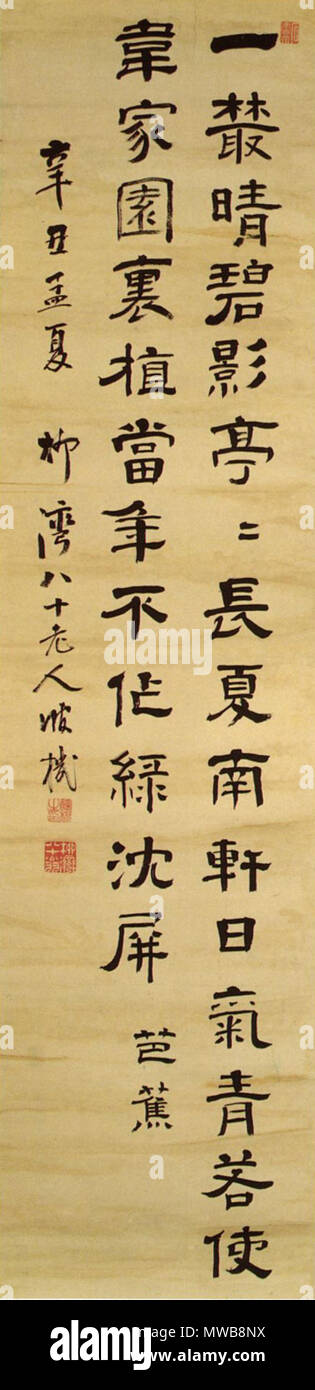 一叢晴碧影亭〻長夏南軒日氣青若使
韋家園裏植當年不作綠沈屏 芭蕉
辛丑孟夏 柳灣八十老人機
alamy
Image ID: MWB8NX
www.alamy.com